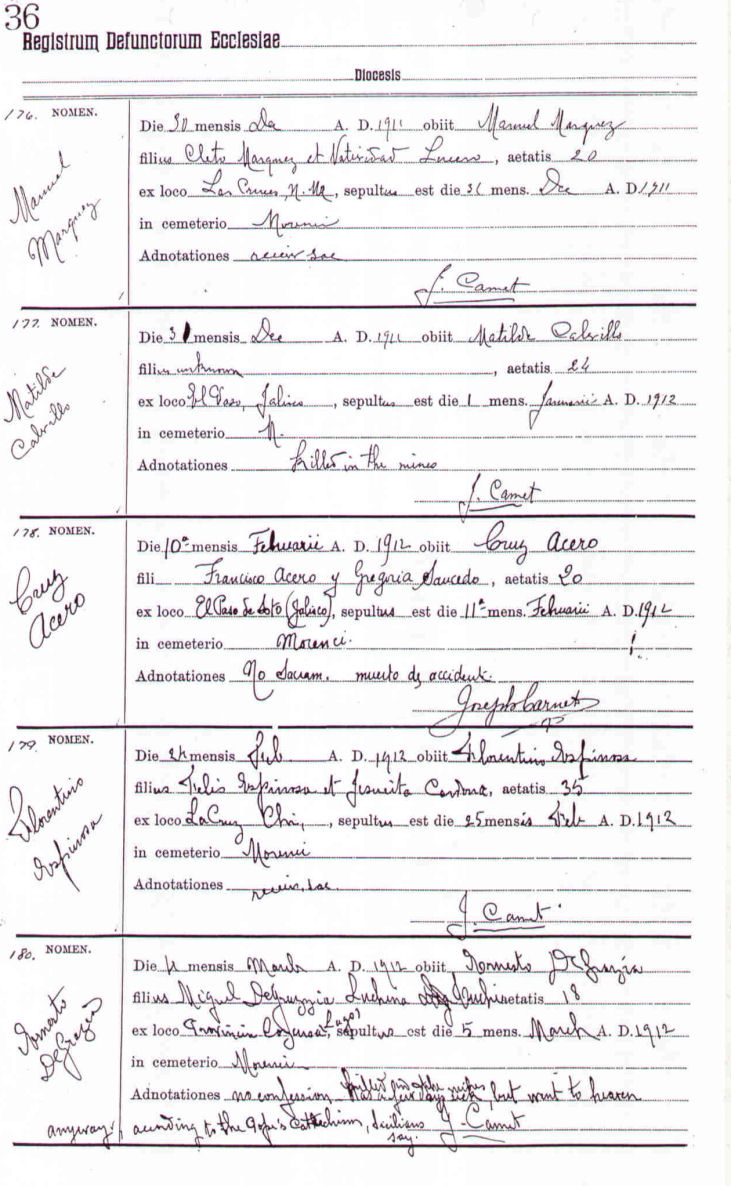 36
Registrum Defunctorum Ecclesiae
Diocesis
176. NOMEN.
Manuel
Marquez
Die 30 mensis De A. D. 1911 obiit Manuel Marquez
filius Cleto Marquez et Natividad Lucero, aetatis 20
ex loco Las Cruces, N. M., sepultus est die 31 mens. Dec A. D. 1911
in cemeterio Morenci
Adnotationes receiv sac
J. Camet
177. NOMEN.
Matilde
Calvillo
Die 31 mensis Dec A. D. 1911 obiit Matilde Calvillo
filius unknown, aetatis 24
ex loco El Paso, Jalisco, sepultus est die 1 mens. Januarii A. D. 1912
in cemeterio M.
Adnotationes killed in the mines
J. Camet
178. NOMEN.
Cruz
Acero
Die 10a mensis Febuarii A. D. 1912 obiit Cruz Acero
fili Francisco Acero y Gregoria Saucedo, aetatis 20
ex loco El Paso de Soto (Jalisco), sepultus est die 11a mens. Febuarii A. D. 1912
in cemeterio Morenci.
Adnotationes No Sacram. muerto de accident.
Joseph Carnet
179. NOMEN.
Florentino
Espinosa
Die 24 mensis Feb A. D. 1912 obiit Florentino Espinosa
filius Felis Espinosa et Jesucita Cardona, aetatis 35
ex loco La Cruz Chi, sepultus est die 25 mensis Feb A. D. 1912
in cemeterio Morenci
Adnotationes receiv. sac.
J. Camet
180. NOMEN.
Ernesto
DeGrazia
Die 4 mensis March A. D. 1912 obiit Ernesto DeGrazia
filius Miguel DeGrazia aetatis 18
ex loco sepultus est die 5 mens. March A. D. 1912
in cemeterio Morenci
Adnotationes no confession killed in the mines but went to heaven
anyway, according to the Pope's Cathechism, Sicilians say. J. Camet